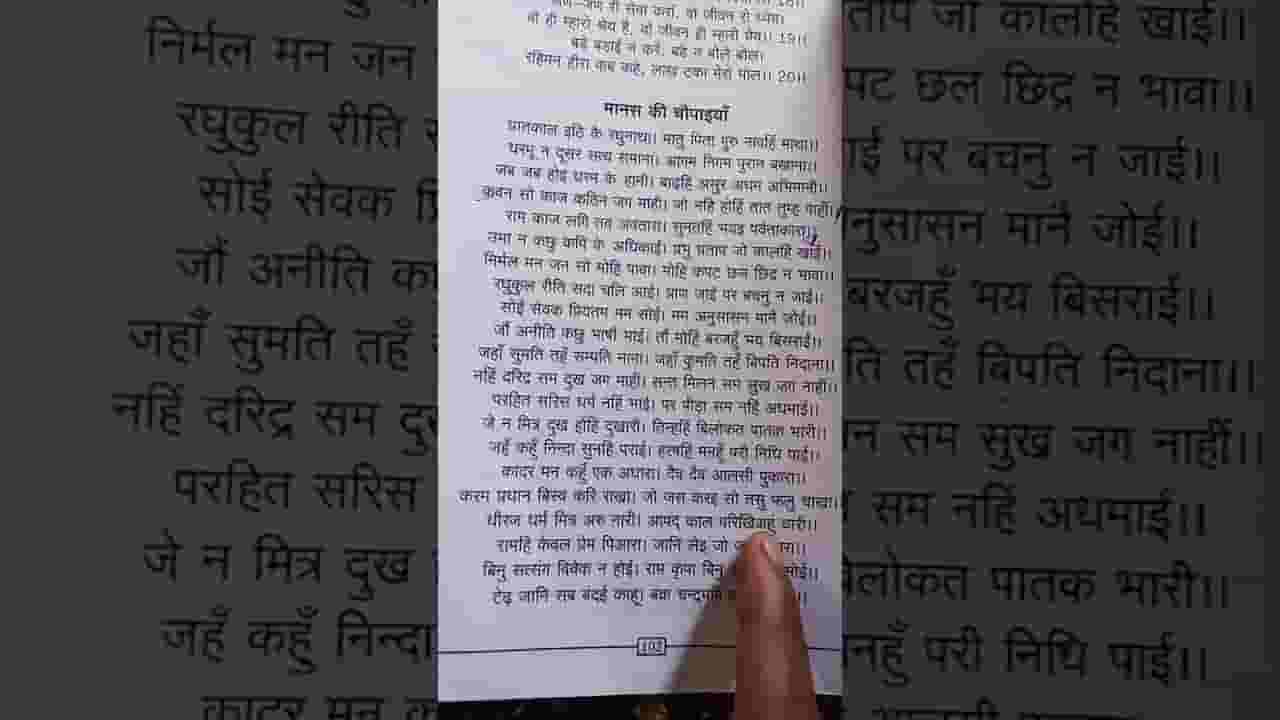 जण-जण री सेवा करां, वो जीवन रो ध्येय।
वो ही म्हारो श्रेय है, वो जीवन ही म्हारो प्रेय।। 19।।
बड़े बड़ाई न करें, बड़े न बोले बोल।
रहिमन हीरा कब कहे, लाख टका मेरो मोल।। 20।।
मानस की चौपाइयाँ
प्रातकाल उठि कै रघुनाथा। मातु पिता गुरु नावहिं माथा।।
धरमु न दूसर सत्य समाना। आगम निगम पुरान बखाना।।
जब जब होई धरम के हानी। बाढ़हिं असुर अधम अभिमानी।।
कवन सो काज कठिन जग माहीं। जो नहिं होहिं तात तुम्ह पाहीं।।
राम काज लगि तव अवतारा। सुनतहिं भयउ पर्वताकारा।।
उमा न कछु कपि के अधिकाई। प्रभु प्रताप जो कालहिं खाई।।
निर्मल मन जन सो मोहि पावा। मोहि कपट छल छिद्र न भावा।।
रघुकुल रीति सदा चलि आई। प्राण जाई पर बचनु न जाई।।
सोई सेवक प्रियतम मम सोई। मम अनुसासन मानै जोई।।
जौं अनीति कछु भाषौं भाई। तौं मोहि बरजहुँ भय बिसराई।।
जहाँ सुमति तहँ सम्पति नाना। जहाँ कुमति तहँ बिपति निदाना।।
नहिं दरिद्र सम दुख जग माहीं। सन्त मिलन सम सुख जग नाहीं।।
परहित सरिस धर्म नहिं भाई। पर पीड़ा सम नहिं अधमाई।।
जे न मित्र दुख होंहि दुखारी। तिन्हहिं बिलोकत पातक भारी।।
जहँ कहुँ निन्दा सुनहिं पराई। हरषहिं मनहुँ परी निधि पाई।।
कादर मन कहुँ एक अधारा। दैव दैव आलसी पुकारा।।
करम प्रधान बिस्व करि राखा। जो जस करइ सो तसु फलु चाखा।।
धीरज धर्म मित्र अरु नारी। आपद काल परिखिअहुं चारी।।
रामहि केवल प्रेम पिआरा। जानि लेइ जो
बिनु सत्संग विवेक न होई। राम कृपा बिनु सोई।।
टेढ़ जानि सब बंदई काहू। बक्र चन्द्रमहि
102